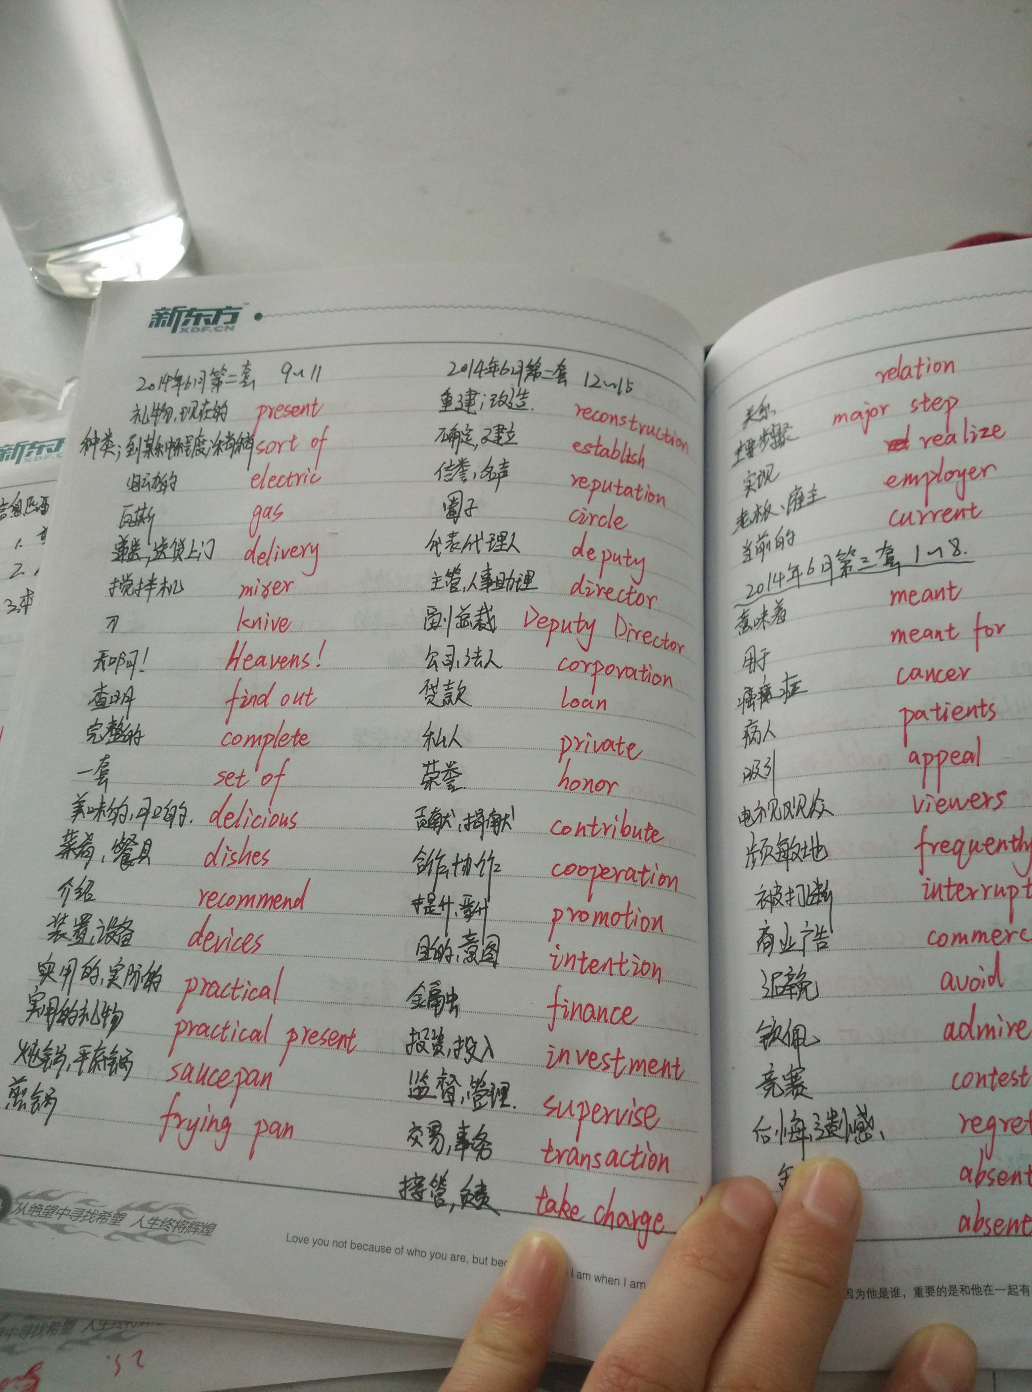 新东方
XDF.CN
2014年6月第二套 9~11
礼物,现在的 present
种类;到某种程度 sort of
电动的 electric
瓦斯 gas
递送,送货上门 delivery
搅拌机 mixer
刀 knive
天啊! Heavens!
查明 find out
完整的 complete
一套 set of
美味的,可口的. delicious
菜肴,餐具 dishes
介绍 recommend
装置,设备 devices
实用的,实际的 practical
实用的礼物 practical present
炖锅,平底锅 saucepan
煎锅 frying pan
2014年6月第二套 12~15
重建;改造. reconstruction
确定,建立 establish
信誉,名声 reputation
圈子 circle
代表代理人 deputy
主管,人事助理 director
副总裁 Deputy Director
公司,法人 corporation
贷款 loan
私人 private
荣誉 honor
贡献,捐献 contribute
合作,协作 cooperation
提升,晋升 promotion
目的,意图 intention
金融 finance
投资,投入 investment
监督,管理. supervise
交易,事务 transaction
接管,负责 take charge
从绝望中寻找希望 人生终将辉煌
Love you not because of who you are, but
I am when I am
关系 relation
主要步骤 major step
实现 realize
老板、雇主 employer
当前的 current
2014年6月第三套 1~8.
意味着 meant
用于 meant for
癌症 cancer
病人 patients
吸引 appeal
电视观众 viewers
频繁地 frequently
被打断 interrupt
商业广告 commerc
避免 avoid
钦佩 admire
竞赛 contest
后悔,遗憾、 regret
absent
absent
因为他是谁，重要的是和他在一起有
1.
2.
3.
中寻找希望 人生终
25.